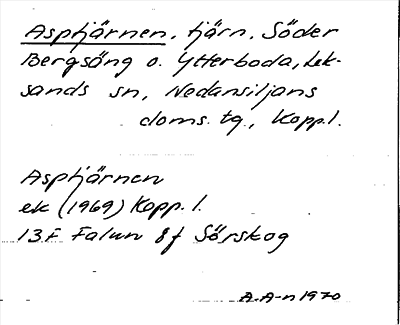 Asptjärnen, tjärn, Söder
Bergsäng o. Ytterboda, Lek-
sands sn, Nedansiljans
doms. tg., Kopp. l.
Asptjärnen
ek (1969) Kopp. l.
13F Falun 8f Sörskog
A.A-n 1970